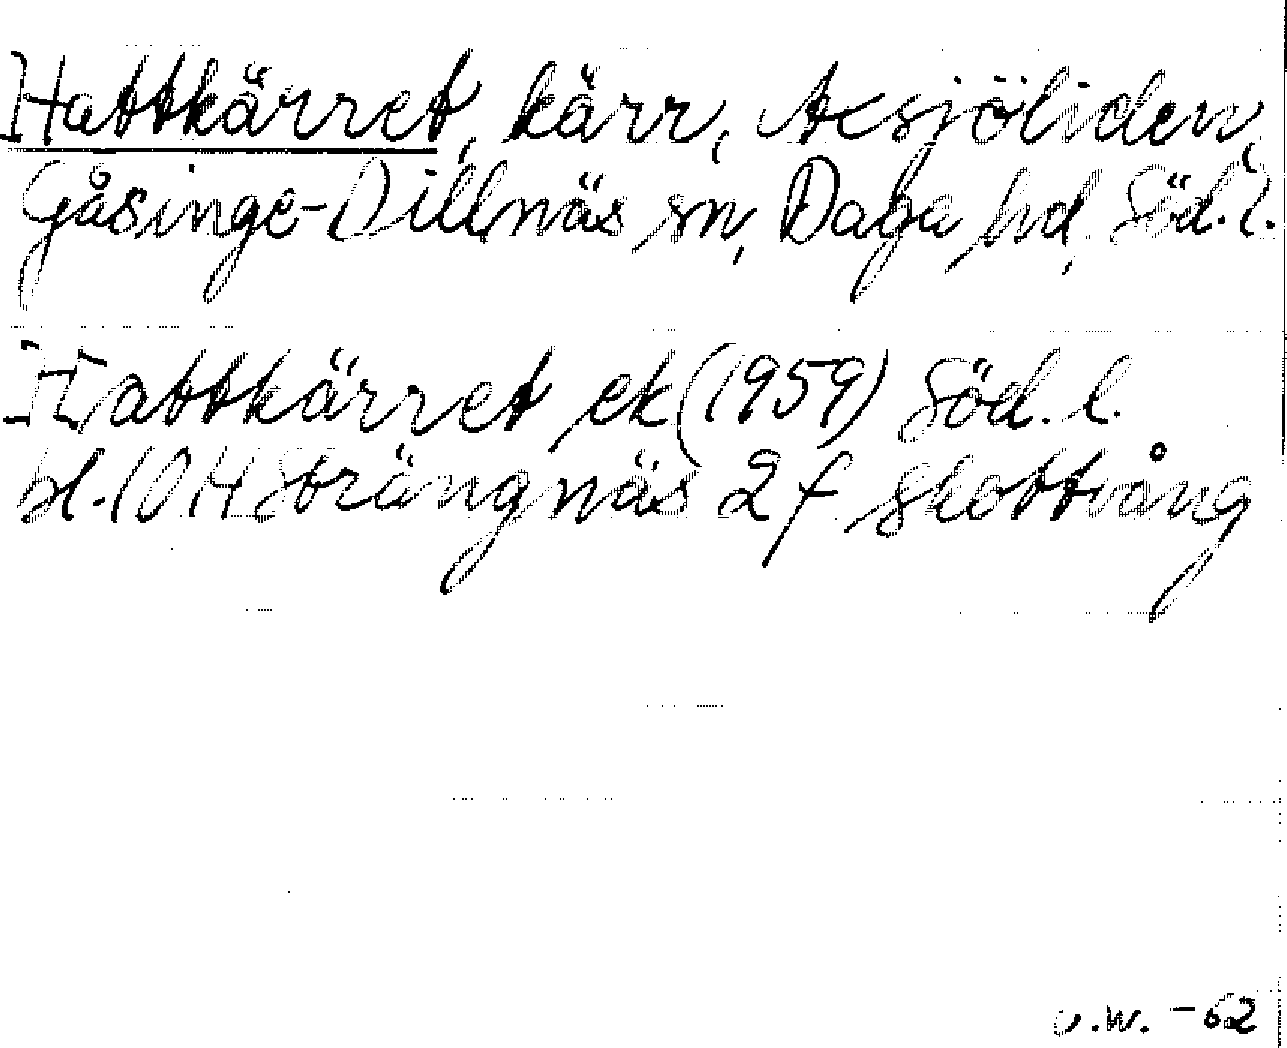 Hattkärret, kärr, Axsjöliden,
Gåsinge-Dillnäs sn, Daga hd, Söd. l.
Hattkärret ek (1959) Söd. l.
bl. 10H Strängnäs 2f Skottvång
v.w. -62